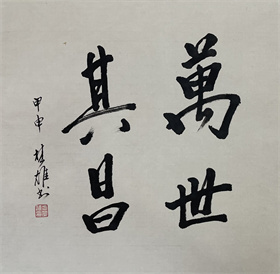 萬世
其昌
甲申 雄書